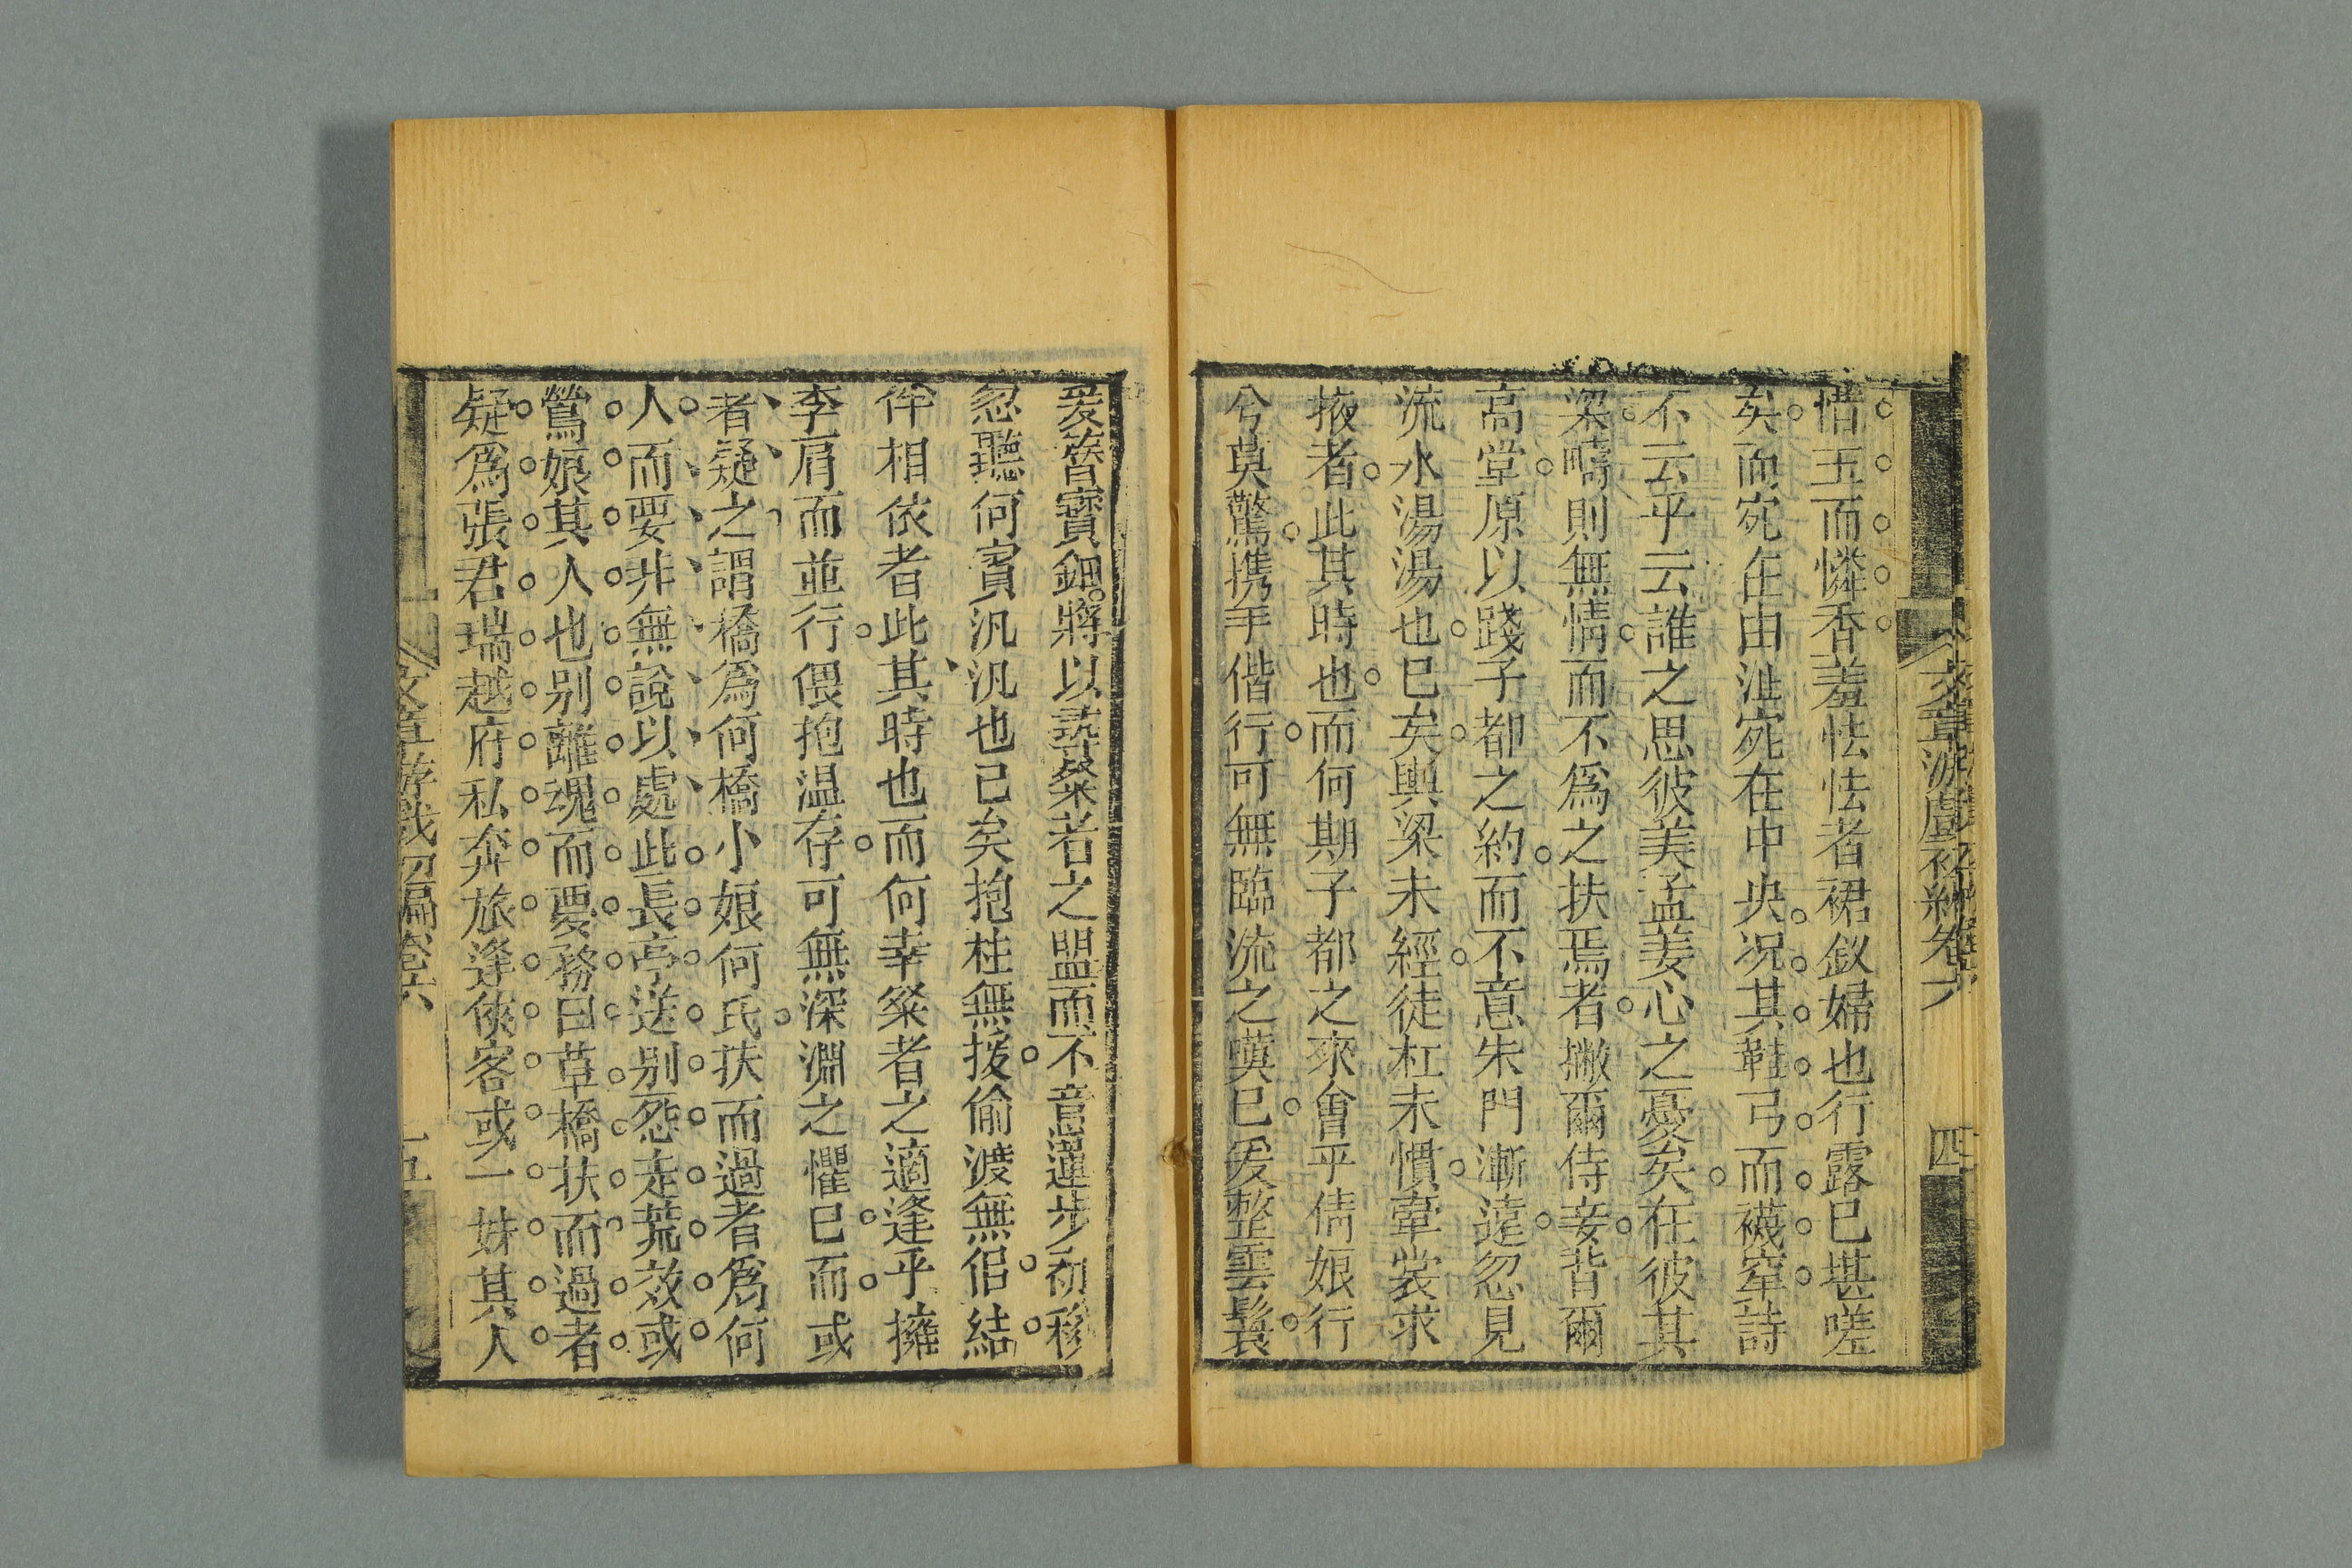 文章游戲初編卷六
四
惜玉而憐香羞怯怯者裙釵婦也行露已堪嗟
矣而宛在由沚宛在中央况其鞋弓而襪窄詩
不云乎云誰之思彼美孟姜心之憂矣在彼其
梁疇則無情而不爲之扶焉者撇爾侍妾背爾
高堂原以踐子都之約而不意朱門漸遠忽見
流水湯湯也已矣輿梁未經徒杠未慣褰裳求
掖者此其時也而何期子都之來會乎倩娘行
兮莫驚携手偕行可無臨流之嘆已爰整雲鬟
爰簪寶鈿將以踐粲者之盟而不意蓮步初移
忽聽何實汎汎也已矣抱柱無援偷渡無侶結
伴相依者此其時也而何幸粲者之適逢乎擁
李肩而並行偎抱温存可無深淵之懼已而或
者疑之謂橋爲何橋小娘何氏扶而過者爲何
人而要非無說以處此長亭送别怨走荒效或
鶯娘其人也别離魂而要務曰草橋扶而過者
疑爲張君瑞越府私奔旅逢俠客或一妹其人
文章游戲初編卷六
十五